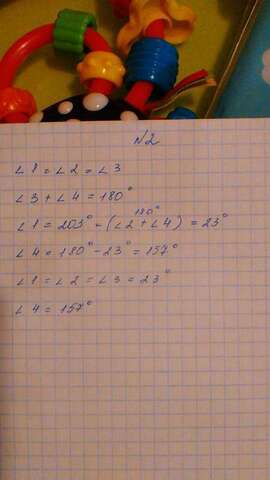 N2
∠1 = ∠2 = ∠3
∠3 + ∠4 = 180°
180°
∠1 = 203° - (∠2 + ∠4) = 23°
∠4 = 180° - 23° = 157°
∠1 = ∠2 = ∠3 = 23°
∠4 = 157°